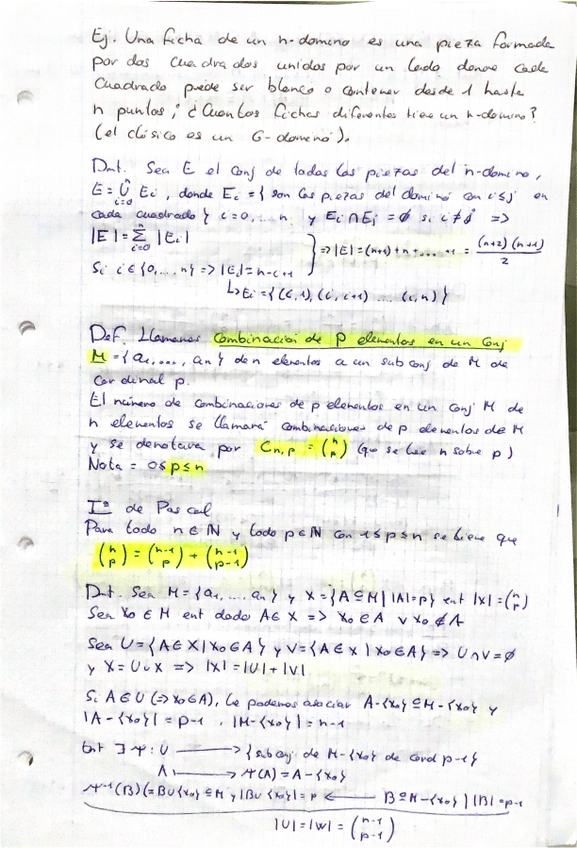 Ej. Una ficha de un n-domino es una pieza formada
por dos cuadrados unidos por un lado donde cada
cuadrado puede ser blanco o contener desde 1 hasta
n puntos; ¿Cuantas fichas diferentes tiene un n-domino?
(el clásico es un 6-dominó).
Dmt. Sea E el conj de todas las piezas del n-domino,
E = ⋃ⁿᵢ₌₀ Eᵢ, donde Eᵢ = { son las piezas del domino con i≤j en
cada cuadrado } i=0,...n. y Eᵢ ∩ Eⱼ = ∅ si i≠j =>
|E| = ∑ⁿᵢ₌₀ |Eᵢ|
=> |E| = (n+1)+n+.....+1 = (n+2)(n+1)/2
Si i∈{0,...n} => |Eᵢ| = n-i+1
↳ Eᵢ = {(i,i), (i,i+1) .... (i,n)}
Def. Llamamos combinación de p elementos en un conj
M = {a₁,...., aₙ} de n elementos a un subconj de M de
cardinal p.
El número de combinaciones de p elementos en un conj M de
n elementos se llamará combinaciones de p elementos de M
y se denotara por Cₙ,ₚ = (n p) (que se lee n sobre p)
Nota = 0≤p≤n
Tª de Pascal
Para todo n∈ℕ y todo p∈ℕ con 1≤p≤n se tiene que
(n p) = (n-1 p) + (n-1 p-1)
Dmt. Sea M = {a₁,.... aₙ} y X = {A⊆M | |A|=p} ent |X| = (n p)
Sea x₀∈M ent dado A∈X => x₀∈A ∨ x₀∉A
Sea U = {A∈X | x₀∈A} y V = {A∈X | x₀∈A} => U∩V=∅
y X = U∪X => |X| = |U|+|V|
Si A∈U (=> x₀∈A), le podemos asociar A-{x₀} ⊆ M-{x₀} y
|A-{x₀}| = p-1, |M-{x₀}| = n-1
Ent ∃ Ψ: U ⟶ {subconj de M-{x₀} de card p-1}
A ⟼ Ψ(A) = A-{x₀}
Ψ⁻¹(B)(=B∪{x₀} ⊆ M y |B∪{x₀}| = p ⟵ B⊆M-{x₀} | |B|=p-1
|U| = |W| = (n-1 p-1)